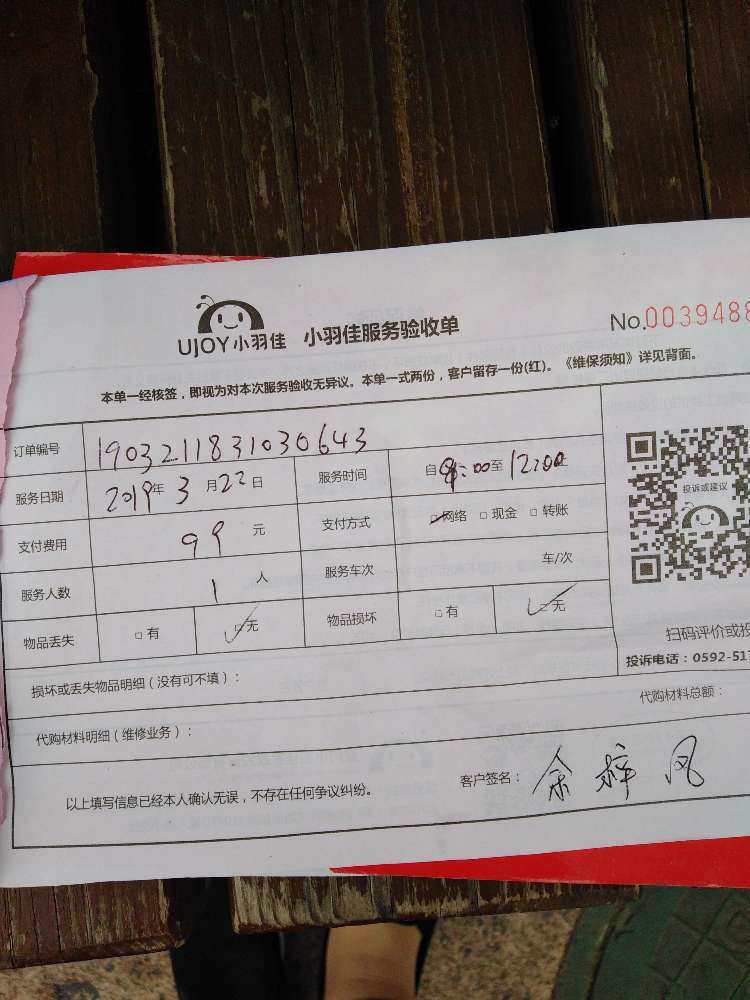 UJOY小羽佳 小羽佳服务验收单 No.0039488
本单一经核签，即视为对本次服务验收无异议。本单一式两份，客户留存一份(红)。《维保须知》详见背面。
订单编号 1903211831030643
服务日期 2019年3月22日 服务时间 自 :00至12:00
支付费用 99元 支付方式 ☑网络 □现金 □转账
服务人数 1人 服务车次 车/次
物品丢失 □有 ☑无 物品损坏 □有 ☑无
投诉或建议
扫码评价或投
投诉电话：0592-517
损坏或丢失物品明细（没有可不填）：
代购材料明细（维修业务）： 代购材料总额：
以上填写信息已经本人确认无误，不存在任何争议纠纷。 客户签名：余梓凤